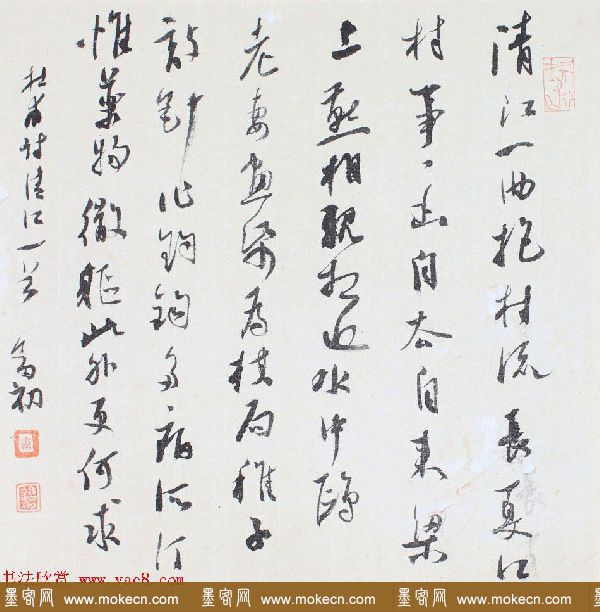 清江一曲抱村流長夏江
村事々幽自去自来梁
上燕相親相近水中鷗
老妻畫紙為棋局稚子
敲針作鈎鈎多病所須
惟藥物微軀此外更何求
杜甫詩清江一首 初
书法欣赏 www.yac8.com
墨客网 www.mokecn.com 墨客网 www.mokecn.com 墨客网 www.mokecn.com 墨客网 www.mokecn.com